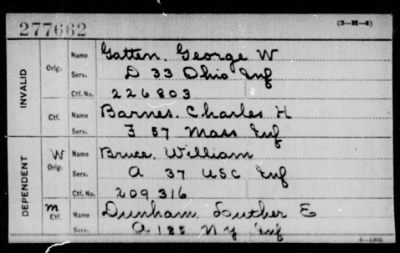 277662 (3-H-4)
INVALID
Orig. Name Gatten, George W
Serv. D 33 Ohio Inf
Ctf. No. 226803
Ctf. Name Barnes, Charles H
Serv. F 57 Mass Inf
DEPENDENT
W Orig. Name Bruce, William
Serv. A 37 USC Inf
Ctf. No. 209316
M Ctf. Name Dunham, Luther E
Serv. A 185 N Y Inf